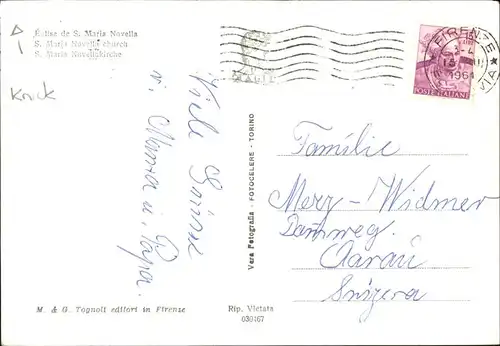 Église de S. Maria Novella
S. Maria Novella church
S. Maria Novellakirche
Knick
Viele Grüsse
v. Mama u. Papa.
Vera Fotografia - FOTOCELERE - TORINO
FIRENZE
1961
POSTE ITALIANE
Familie
Merz-Widmer
Dammweg.
Aarau
Svizera
M. & G. Tognoli editori in Firenze
Rip. Vietata
030467